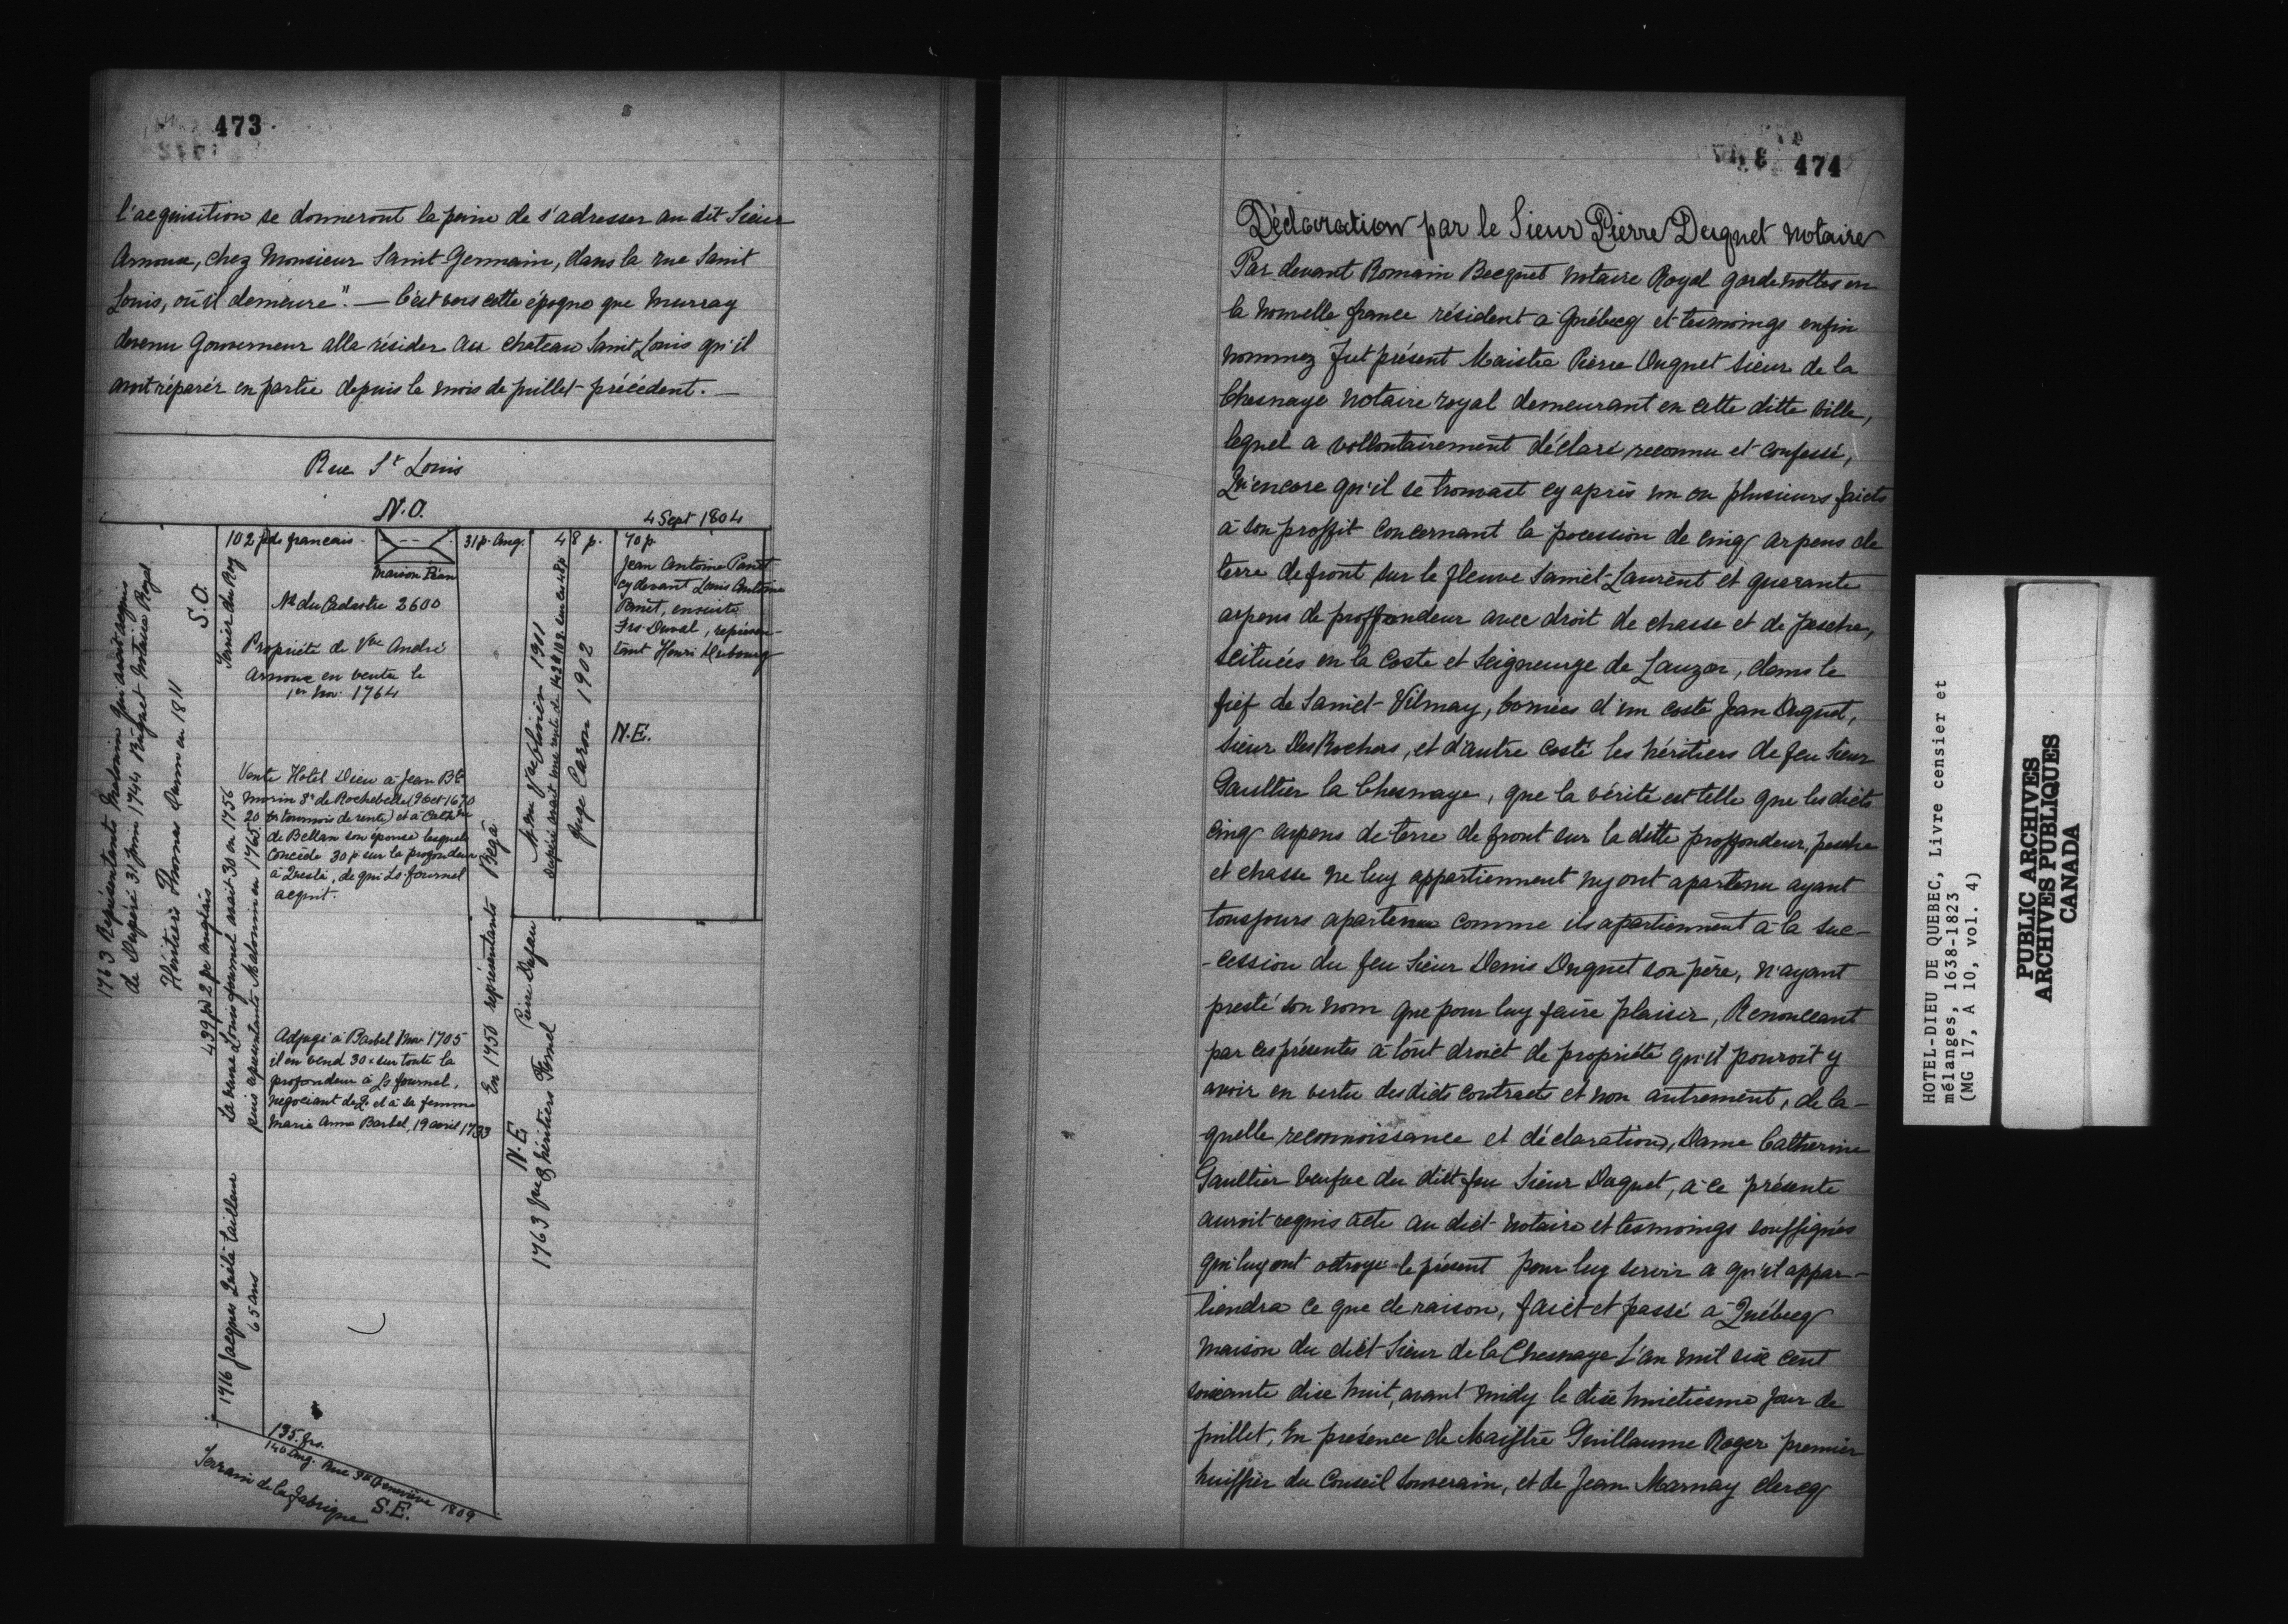 473
l'acquisition se donneront la peine de s'adresser au dit Sieur
Arnoux, chez Monsieur Saint-Germain, dans la rue Saint
Louis, où il demeure". — C'est vers cette époque que Murray
devenu Gouverneur alla résider au chateau Saint Louis qu'il
avait réparer en partie depuis le mois de juillet précédent. —
Rue St Louis
N.O.
4 Sept 1804
102 pds francais
Maison Péan
31 p. Ang.
48 p.
70 p.
Jean Antoine Panet
cy devant Louis Antoine
Panet, ensuite
Frs Duval, représen-
tant Henri
N.E.
No du Cadastre 2600
Propriété de Vve André
Arnoux en vente le
1er 1764
Vente Hotel Dieu à Jean Bte
Morin Sr de Rochebelle (9 oct 1670
20 tournois de rente) et à Cathne
de Bellan son épouse lesquels
Concède 30 p sur la profondeur
à , de qui Ls fournel
acquit.
Adjugé à Barbel 1705
il en vend 30 sur toute la
profondeur à Ls fournel,
négociant de Q. et à la femme
Marie Anne Barbel, 19 avril 1733
1763 Représentants qui avait acquis
de Dupéré 31 juin 1744 Notaire Royal
S.O.
Héritiers Thomas Dunn en 1811
439 pd 2 pc anglais
Terrier du Roy
La veuve Louis fournel avait 30 en 1756
puis représentants en 1765
1716 Jacques tailleur
65 ans
En 1750 représentants Bégà
1911
Juge Caron 1902
Pierre Dufau
N.E.
1763 héritiers Fornel
195 frs.
140 Ang. Rue Ste Geneviève 1809
Terrain de la fabrique S.E.
474
Déclaration par le Sieur Pierre Duquet notaire
Par devant Romain Becquet Notaire Royal garde nottes en
la nouvelle france résident a Québecq et tesmoings enfin
nommez fut présent Maistre Pierre Duquet sieur de la
Chesnaye notaire royal demeurant en cette ditte ville,
lequel a vollontairement déclaré, reconnu et confessé,
Qu'encore qu'il se trouvast cy après un ou plusieurs faicts
à son proffit concernant la pocession de cinq arpens de
terre de front sur le fleuve Sainct-Laurent et quarante
arpens de proffondeur avec droit de chasse et de pesche,
scituées en la Coste et Seigneurye de Lauzon, dans le
fief de Sainct-Vilmay, bornées d'un costé Jean Duquet,
sieur Des Rochers, et d'autre costé les héritiers de feu Sieur
Gaultier la Chesnaye, que la vérité est telle que lesdicts
cinq arpens de terre de front sur la dite proffondeur, pesche
et chasse ne luy appartiennent ny ont apartenu ayant
tousjours apartenu comme ils apartiennent à la suc-
-cession du feu Sieur Denis Duquet son père, n'ayant
presté son nom que pour luy faire plaisir, Renonceant
par ces présentes à tout droict de propriété qu'il pouroit y
avoir en vertu desdicts contracts et non autrement, de la-
quelle reconnoissance et déclaration, Dame Catherine
Gaultier veufve du dict feu Sieur Duquet, à ce présente
auroit requis acte au dict notaire et tesmoings souffignés
qui luy ont octroyé le présent pour luy servir a qu'il appar-
tiendra ce que de raison, faict et passé à Québecq
maison du dict Sieur de la Chesnaye L'an mil six cent
soixante dix huit, avant midy le dix huictiesme jour de
juillet, En présence de Maistre Guillaume Roger premier
huissier du Conseil Souverain, et de Jean Marnay clercq
HOTEL-DIEU DE QUEBEC, Livre censier et
mélanges, 1638-1823
(MG 17, A 10, vol. 4)
PUBLIC ARCHIVES
ARCHIVES PUBLIQUES
CANADA